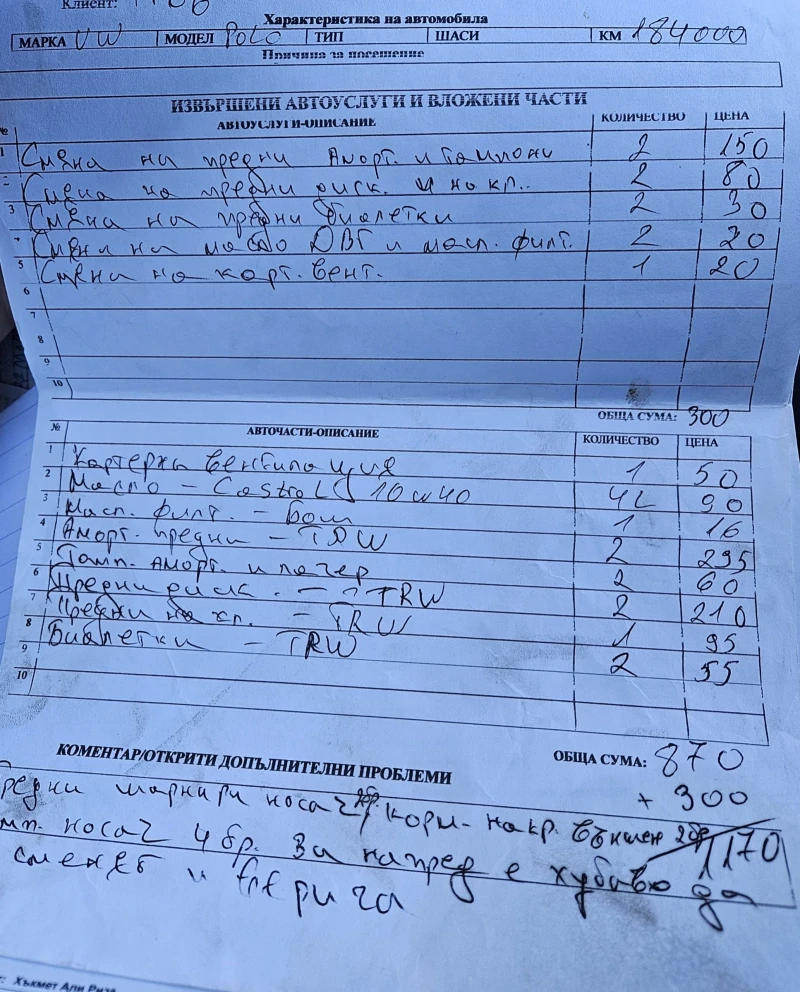 Клиент:
Характеристика на автомобила
МАРКА VW МОДЕЛ Polo ТИП ШАСИ КМ 184000
Причина за посещение
ИЗВЪРШЕНИ АВТОУСЛУГИ И ВЛОЖЕНИ ЧАСТИ
№ АВТОУСЛУГИ-ОПИСАНИЕ КОЛИЧЕСТВО ЦЕНА
1 Смяна на предни Аморт. и тампони 2 150
2 Смяна на предни диск. и накл. 2 80
3 Смяна на предни биалетки 2 30
4 Смяна на масло ДВГ и масл. филт. 2 20
5 Смяна на карт. вент. 1 20
6
7
8
9
10
ОБЩА СУМА: 300
№ АВТОЧАСТИ-ОПИСАНИЕ КОЛИЧЕСТВО ЦЕНА
1 Картерна вентилация 1 50
2 Масло - Castrol 10w40 4L 90
3 Масл. филт. - Бош 1 16
4 Аморт. предни - TRW 2 295
5 Тамп. Аморт. и лагер 2 60
6 Предни диск. - TRW 2 210
7 Предни накл. - TRW 1 95
8 Биалетки - TRW 2 55
9
10
КОМЕНТАР/ОТКРИТИ ДОПЪЛНИТЕЛНИ ПРОБЛЕМИ ОБЩА СУМА: 870
+ 300
1170
шарнири носач 2бр корм. накр. външен 2бр
носач 4 бр. За напред е хубаво да
сменят и
Хъкмет Али Риза